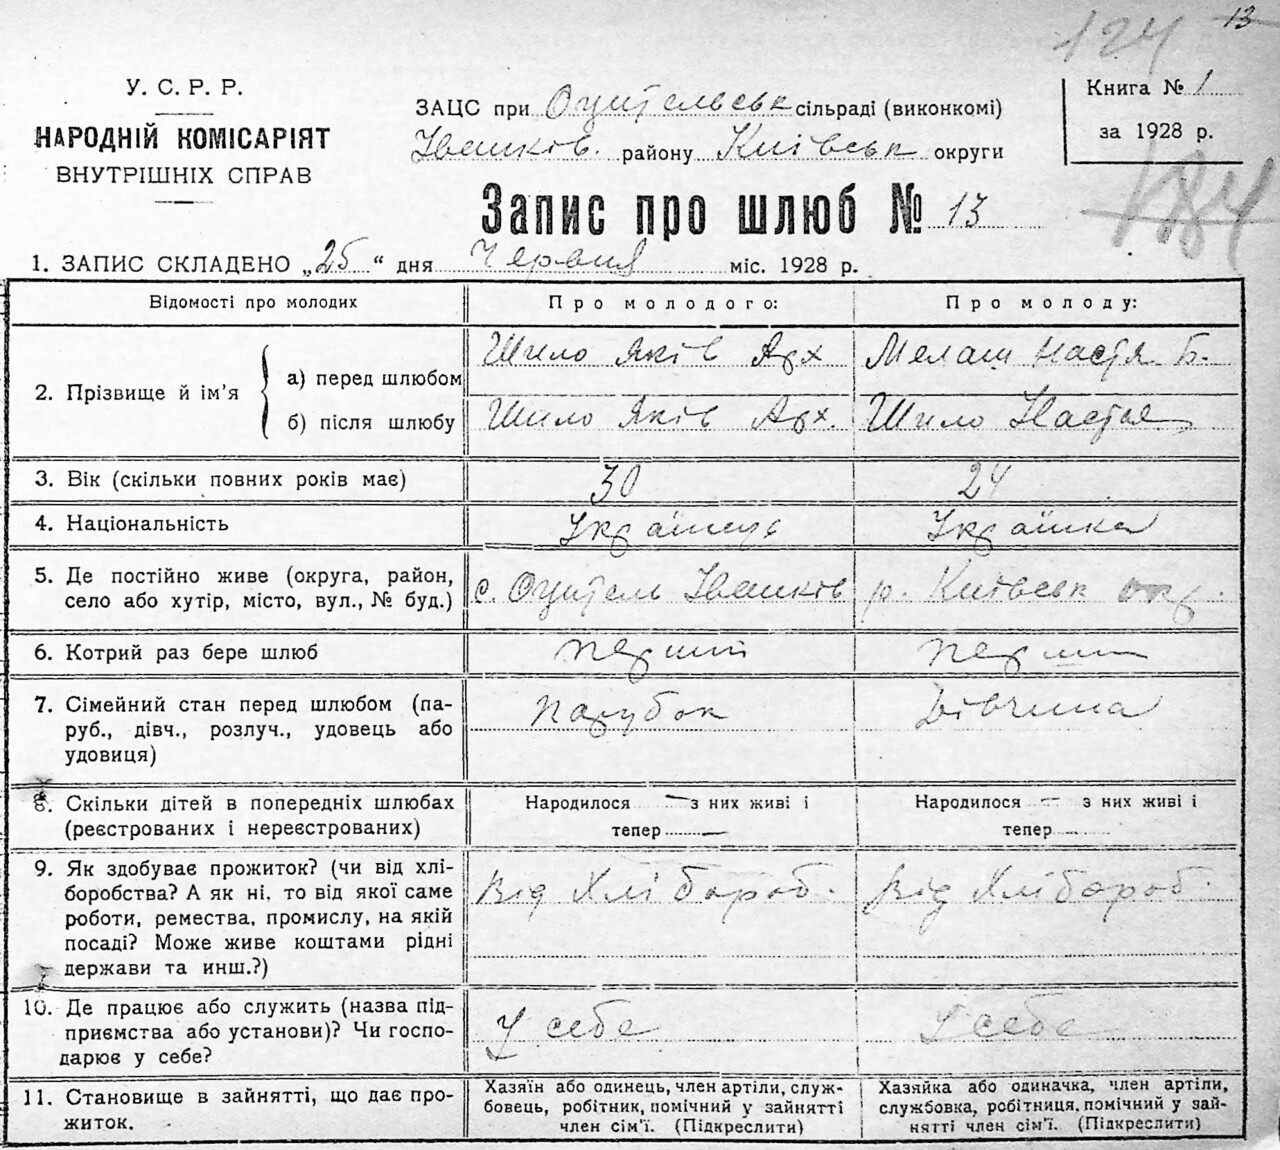 13
124
У. С. Р. Р.
НАРОДНІЙ КОМІСАРІЯТ
ВНУТРІШНІХ СПРАВ
ЗАЦС при Оцительськ сільраді (виконкомі)
Івашків. району Київськ округи
Книга № 1
за 1928 р.
184
Запис про шлюб № 13
1. ЗАПИС СКЛАДЕНО „25“ дня Червня міс. 1928 р.
Відомості про молодих Про молодого: Про молоду:
2. Прізвище й ім'я
а) перед шлюбом Шило Яків Арх Мелаш Настя Б.
б) після шлюбу Шило Яків Арх. Шило Настья
3. Вік (скільки повних років має) 30 24
4. Національність Українець Українка
5. Де постійно живе (округа, район,
село або хутір, місто, вул., № буд.) с. Оцитель Івашків р. Київськ окр.
6. Котрий раз бере шлюб перший перший
7. Сімейний стан перед шлюбом (па-
руб., дівч., розлуч., удовець або
удовиця) Парубок Дівчина
8. Скільки дітей в попередніх шлюбах
(реєстрованих і нереєстрованих)
Народилося — з них живі і
тепер —
Народилося — з них живі і
тепер
9. Як здобуває прожиток? (чи від хлі-
боробства? А як ні, то від якої саме
роботи, ремества, промислу, на якій
посаді? Може живе коштами рідні
держави та инш.?)
Від Хлібороб. Від Хлібороб.
10. Де працює або служить (назва під-
приємства або установи)? Чи госпо-
дарює у себе?
У себе У себе
11. Становище в зайнятті, що дає про-
житок.
Хазяїн або одинець, член артіли, служ-
бовець, робітник, помічний у зайнятті
член сім'ї. (Підкреслити)
Хазяйка або одиначка, член артіли,
службовка, робітниця, помічний у зай-
нятті член сім'ї. (Підкреслити)